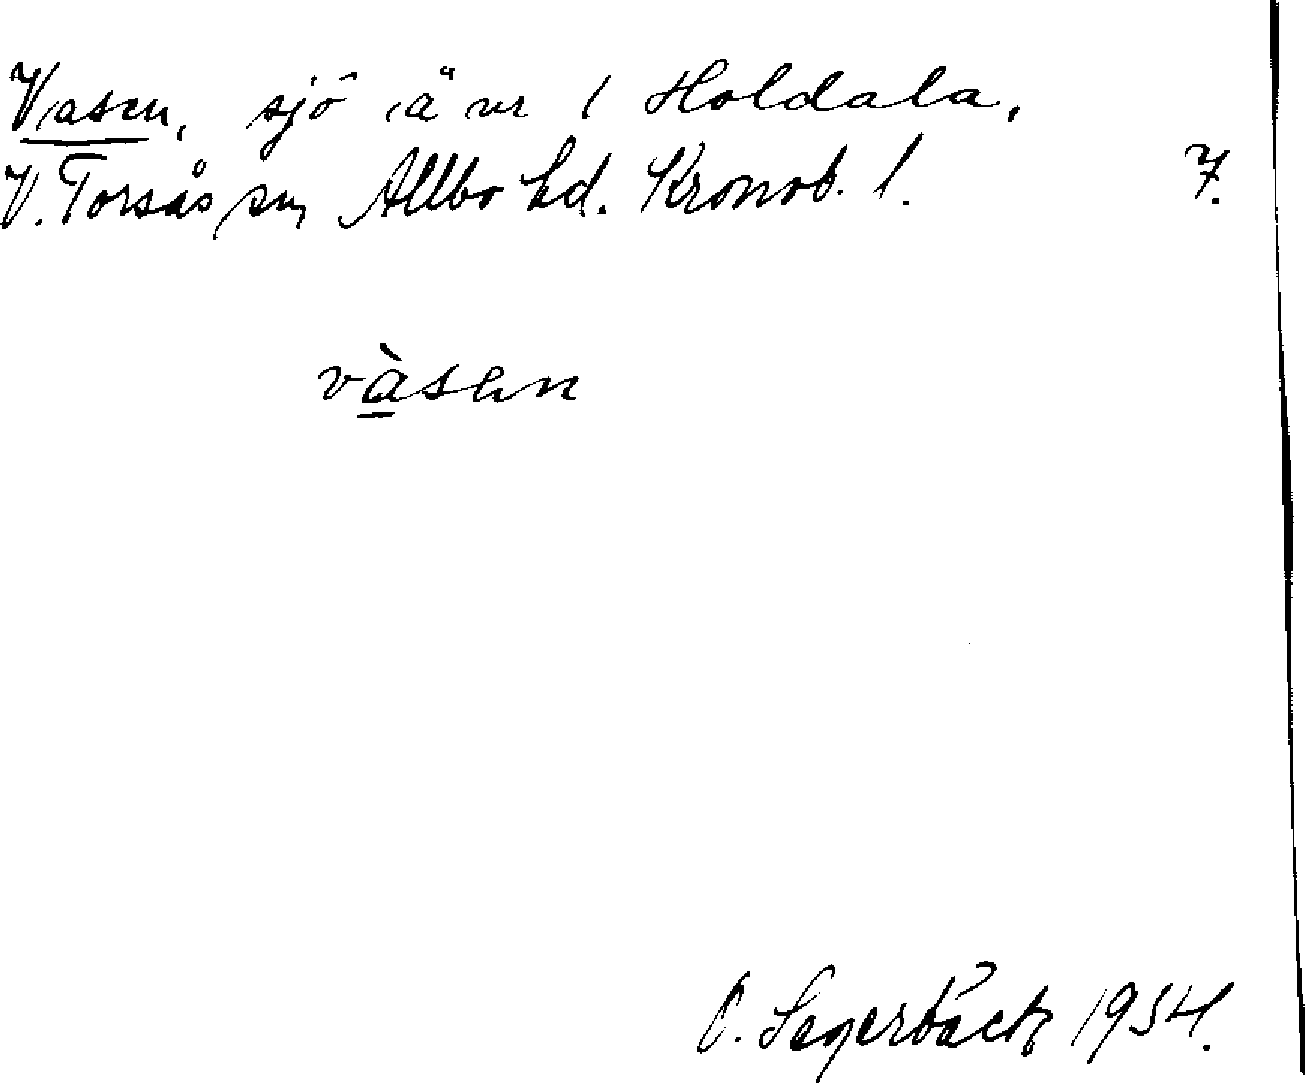 Vasen, sjö ä vr / Holdala,
V. Torsås sn, Allbo hd. Kronob. l. 7.
vàsen
O. Segerbäck 1954.